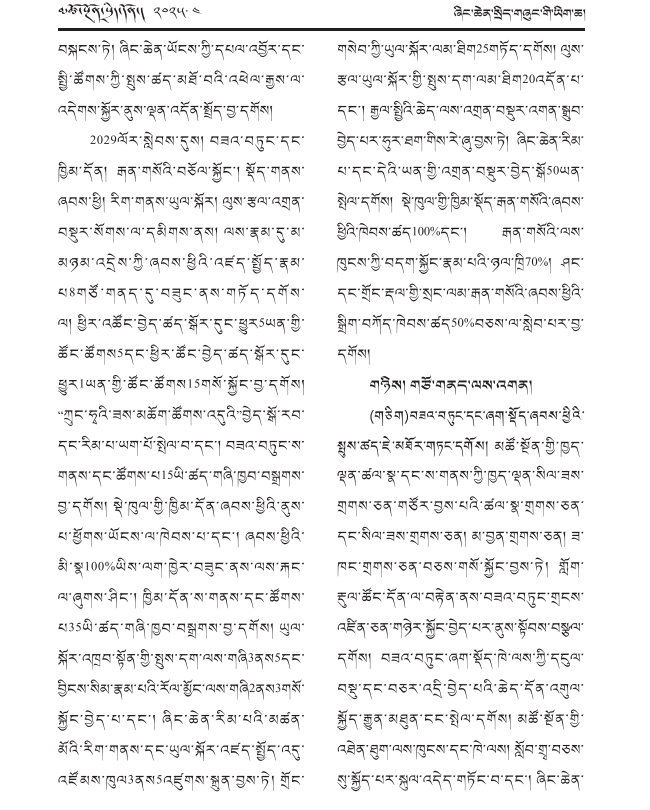 ༢༠༢༥.༤
ཞིང་ཆེན་སྲིད་གཞུང་གི་ཡིག་ཆ།
བསྐངས་ཏེ། ཞིང་ཆེན་ཡོངས་ཀྱི་དཔལ་འབྱོར་དང་
སྤྱི་ཚོགས་ཀྱི་སྤུས་ཚད་མཐོ་བའི་འཕེལ་རྒྱས་ལ་
འདེགས་སྐྱོར་ནུས་ལྡན་འདོན་སྤྲོད་བྱ་དགོས།
2029ལོར་སླེབས་དུས། བཟའ་བཏུང་དང་
ཁྱིམ་དོན། རྒན་གསོའི་བཅོལ་སྐྱོང་། སྡོད་གནས་
ཞབས་ཕྱི། རིག་གནས་ཡུལ་སྐོར། ལུས་རྩལ་འགྲན་
བསྡུར་སོགས་ལ་དམིགས་ནས། ལས་རྣམ་དུ་མ་
མཉམ་འདྲེས་ཀྱི་ཞབས་ཕྱིའི་འཛད་སྤྱོད་རྣམ་
པ8གཙོ་གནད་དུ་བཟུང་ནས་གཏོད་དགོས་
ལ། ཕྱིར་འཚོང་བྱེད་ཚད་སྒོར་དུང་ཕྱུར5ཡན་གྱི་
ཚོང་ཚོགས5དང་ཕྱིར་ཚོང་བྱེད་ཚད་སྒོར་དུང་
ཕྱུར1ཡན་གྱི་ཚོང་ཚོགས15གསོ་སྐྱོང་བྱ་དགོས།
“ཀྲུང་ཧྭའི་ཟས་མཆོག་ཚོགས་འདུའི”བྱེད་སྒོ་རབ་
དང་རིམ་པ་ཡག་པོ་སྤེལ་བ་དང་། བཟའ་བཏུང་ས་
གནས་དང་ཚོགས་པ15ཡི་ཚད་གཞི་ཁྱབ་བསྒྲགས་
བྱ་དགོས། སྡེ་ཁུལ་གྱི་ཁྱིམ་དོན་ཞབས་ཕྱིའི་ནུས་
པ་ཕྱོགས་ཡོངས་ལ་ཁེབས་པ་དང་། ཞབས་ཕྱིའི་
མི་སྣ100%ཡིས་ལག་ཁྱེར་བཟུང་ནས་ལས་རྐང་
ལ་ཞུགས་ཤིང་། ཁྱིམ་དོན་ས་གནས་དང་ཚོགས་
པ35ཡི་ཚད་གཞི་ཁྱབ་བསྒྲགས་བྱ་དགོས། ཡུལ་
སྐོར་འཁྲབ་སྟོན་གྱི་སྤུས་དག་ལས་གཞི3ནས5དང་
བྱིངས་སིམ་རྣམ་པའི་རོལ་མྱོང་ལས་གཞི2ནས3གསོ་
སྐྱོང་བྱེད་པ་དང་། ཞིང་ཆེན་རིམ་པའི་མཚན་
མོའི་རིག་གནས་དང་ཡུལ་སྐོར་འཛད་སྤྱོད་འདུ་
འཛོམས་ཁུལ3ནས5འཛུགས་སྐྲུན་བྱས་ཏེ། གྲོང་
གསེབ་ཀྱི་ཡུལ་སྐོར་ལམ་ཐིག25གཏོད་དགོས། ལུས་
རྩལ་ཡུལ་སྐོར་གྱི་སྤུས་དག་ལམ་ཐིག20འདོན་པ་
དང་། རྒྱལ་སྤྱིའི་ཆེད་ལས་འགྲན་བསྡུར་འགན་སྒྲུབ་
བྱེད་པར་ཧུར་ཐག་གིས་རེ་ཞུ་བྱས་ཏེ། ཞིང་ཆེན་རིམ་
པ་དང་དེའི་ཡན་གྱི་འགྲན་བསྡུར་བྱེད་སྒོ50ཡན་
སྤེལ་དགོས། སྡེ་ཁུལ་གྱི་ཁྱིམ་སྡོད་རྒན་གསོའི་ཞབས་
ཕྱིའི་ཁེབས་ཚད100%དང་། རྒན་གསོའི་ལས་
ཁུངས་ཀྱི་བདག་སྐྱོང་རྣམ་པའི་ཉལ་ཁྲི70%། ཤང་
དང་གྲོང་རྡལ་གྱི་སྲང་ལམ་རྒན་གསོའི་ཞབས་ཕྱིའི་
སྒྲིག་བཀོད་ཁེབས་ཚད50%བཅས་ལ་སླེབ་པར་བྱ་
དགོས།
གཉིས། གཙོ་གནད་ལས་འགན།
(གཅིག)བཟའ་བཏུང་དང་ཞག་སྡོད་ཞབས་ཕྱིའི་
སྤུས་ཚད་ཇེ་མཐོར་གཏང་དགོས། མཚོ་སྔོན་གྱི་ཁྱད་
ལྡན་ཚལ་སྣ་དང་ས་གནས་ཀྱི་ཁྱད་ལྡན་སིལ་ཟས་
གྲགས་ཅན་གཙོར་བྱས་པའི་ཚལ་སྣ་གྲགས་ཅན་
དང་སིལ་ཟས་གྲགས་ཅན། མ་བྱན་གྲགས་ཅན། ཟ་
ཁང་གྲགས་ཅན་བཅས་གསོ་སྐྱོང་བྱས་ཏེ། གློག་
རྡུལ་ཚོང་དོན་ལ་བརྟེན་ནས་བཟའ་བཏུང་གྲངས་
འཛིན་ཅན་གཉེར་སྐྱོང་བྱེད་པར་ནུས་སྟོབས་བསྩལ་
དགོས། བཟའ་བཏུང་ཞག་སྡོད་ཁེ་ལས་ཀྱི་དངུལ་
བསྡུ་དང་བཅར་འདྲི་བྱེད་པའི་ཆེད་དོན་འགུལ་
སྐྱོད་རྒྱུན་མཐུན་ངང་སྤེལ་དགོས། མཚོ་སྔོན་གྱི་
འཐེན་ཐུག་ལས་ཁུངས་དང་ཁེ་ལས། སློབ་གྲྭ་བཅས་
སུ་སྐྱོད་པར་སྐུལ་འདེད་གཏོང་བ་དང་། ཞིང་ཆེན་